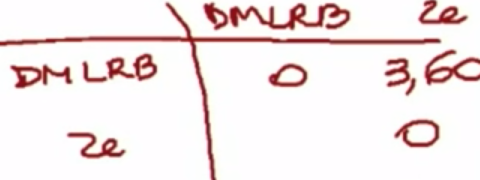 DMLRB Ze
DMLRB 0 3,60
Ze 0